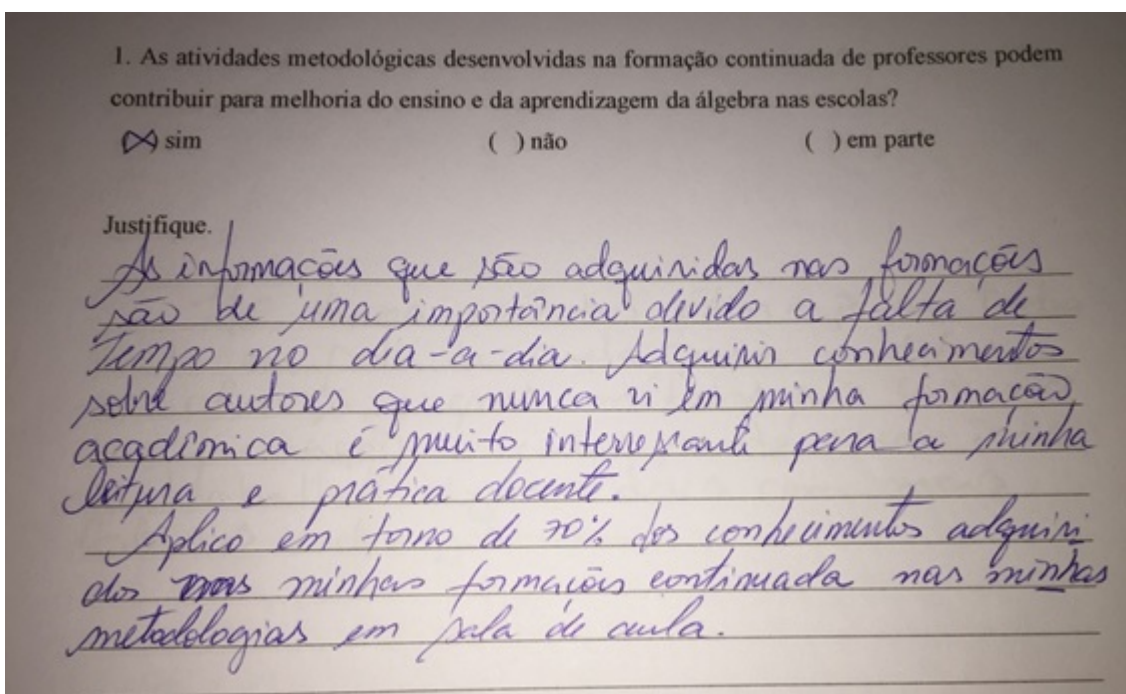 1. As atividades metodológicas desenvolvidas na formação continuada de professores podem
contribuir para melhoria do ensino e da aprendizagem da álgebra nas escolas?
(X) sim ( ) não ( ) em parte
Justifique.
As informações que são adquiridas nas formações
são de uma importância devido a falta de
tempo no dia-a-dia. Adquirir conhecimentos
sobre autores que nunca vi em minha formação
acadêmica é muito interressante para a minha
leitura e prática docente.
Aplico em torno de 70% dos conhecimentos adquiri
dos nas minhas formações continuada nas minhas
metodologias em sala de aula.